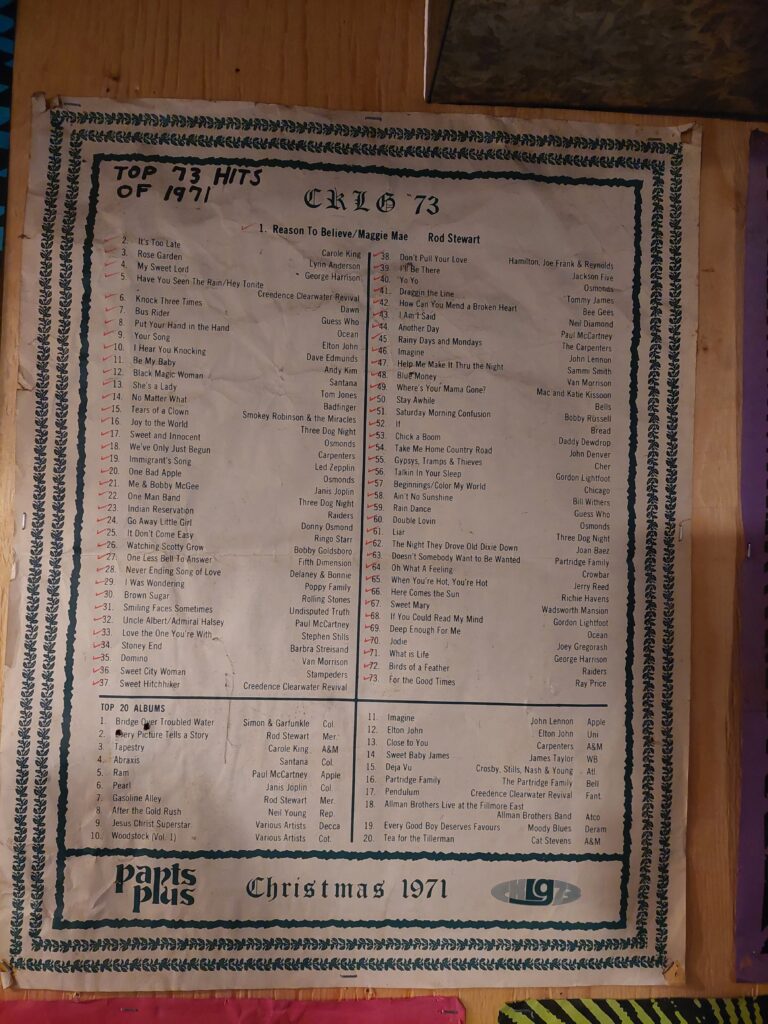 TOP 73 HITS
OF 1971
CKLG '73
1. Reason To Believe/Maggie Mae Rod Stewart
2. It's Too Late Carole King
3. Rose Garden Lynn Anderson
4. My Sweet Lord George Harrison
5. Have You Seen The Rain/Hey Tonite
Creedence Clearwater Revival
6. Knock Three Times Dawn
7. Bus Rider Guess Who
8. Put Your Hand in the Hand Ocean
9. Your Song Elton John
10. I Hear You Knocking Dave Edmunds
11. Be My Baby Andy Kim
12. Black Magic Woman Santana
13. She's a Lady Tom Jones
14. No Matter What Badfinger
15. Tears of a Clown Smokey Robinson & the Miracles
16. Joy to the World Three Dog Night
17. Sweet and Innocent Osmonds
18. We've Only Just Begun Carpenters
19. Immigrant's Song Led Zepplin
20. One Bad Apple Osmonds
21. Me & Bobby McGee Janis Joplin
22. One Man Band Three Dog Night
23. Indian Reservation Raiders
24. Go Away Little Girl Donny Osmond
25. It Don't Come Easy Ringo Starr
26. Watching Scotty Grow Bobby Goldsboro
27. One Less Bell To Answer Fifth Dimension
28. Never Ending Song of Love Delaney & Bonnie
29. I Was Wondering Poppy Family
30. Brown Sugar Rolling Stones
31. Smiling Faces Sometimes Undisputed Truth
32. Uncle Albert/Admiral Halsey Paul McCartney
33. Love the One You're With Stephen Stills
34. Stoney End Barbra Streisand
35. Domino Van Morrison
36. Sweet City Woman Stampeders
37. Sweet Hitchhiker Creedence Clearwater Revival
38. Don't Pull Your Love Hamilton, Joe Frank & Reynolds
39. I'll Be There Jackson Five
40. Yo Yo Osmonds
41. Draggin the Line Tommy James
42. How Can You Mend a Broken Heart Bee Gees
43. I Said Neil Diamond
44. Another Day Paul McCartney
45. Rainy Days and Mondays The Carpenters
46. Imagine John Lennon
47. Help Me Make It Thru the Night Sammi Smith
48. Blue Money Van Morrison
49. Where's Your Mama Gone? Mac and Katie Kissoon
50. Stay Awhile Bells
51. Saturday Morning Confusion Bobby Russell
52. If Bread
53. Chick a Boom Daddy Dewdrop
54. Take Me Home Country Road John Denver
55. Gypsys, Tramps & Thieves Cher
56. Talkin In Your Sleep Gordon Lightfoot
57. Beginnings/Color My World Chicago
58. Ain't No Sunshine Bill Withers
59. Rain Dance Guess Who
60. Double Lovin Osmonds
61. Liar Three Dog Night
62. The Night They Drove Old Dixie Down Joan Baez
63. Doesn't Somebody Want to Be Wanted Partridge Family
64. Oh What A Feeling Crowbar
65. When You're Hot, You're Hot Jerry Reed
66. Here Comes the Sun Richie Havens
67. Sweet Mary Wadsworth Mansion
68. If You Could Read My Mind Gordon Lightfoot
69. Deep Enough For Me Ocean
70. Jodie Joey Gregorash
71. What is Life George Harrison
72. Birds of a Feather Raiders
73. For the Good Times Ray Price
TOP 20 ALBUMS
1. Bridge Over Troubled Water Simon & Garfunkle Col.
2. Every Picture Tells a Story Rod Stewart Mer.
3. Tapestry Carole King A&M
4. Abraxis Santana Col.
5. Ram Paul McCartney Apple
6. Pearl Janis Joplin Col.
7. Gasoline Alley Rod Stewart Mer.
8. After the Gold Rush Neil Young Rep.
9. Jesus Christ Superstar Various Artists Decca
10. Woodstock (Vol. 1) Various Artists Cot.
11. Imagine John Lennon Apple
12. Elton John Elton John Uni
13. Close to You Carpenters A&M
14. Sweet Baby James James Taylor WB
15. Deja Vu Crosby, Stills, Nash & Young Atl
16. Partridge Family The Partridge Family Bell
17. Pendulum Creedence Clearwater Revival Fant.
18. Allman Brothers Live at the Fillmore East
Allman Brothers Band Atco
19. Every Good Boy Deserves Favours Moody Blues Deram
20. Tea for the Tillerman Cat Stevens A&M
Parts
Plus
Christmas 1971
CKLG73